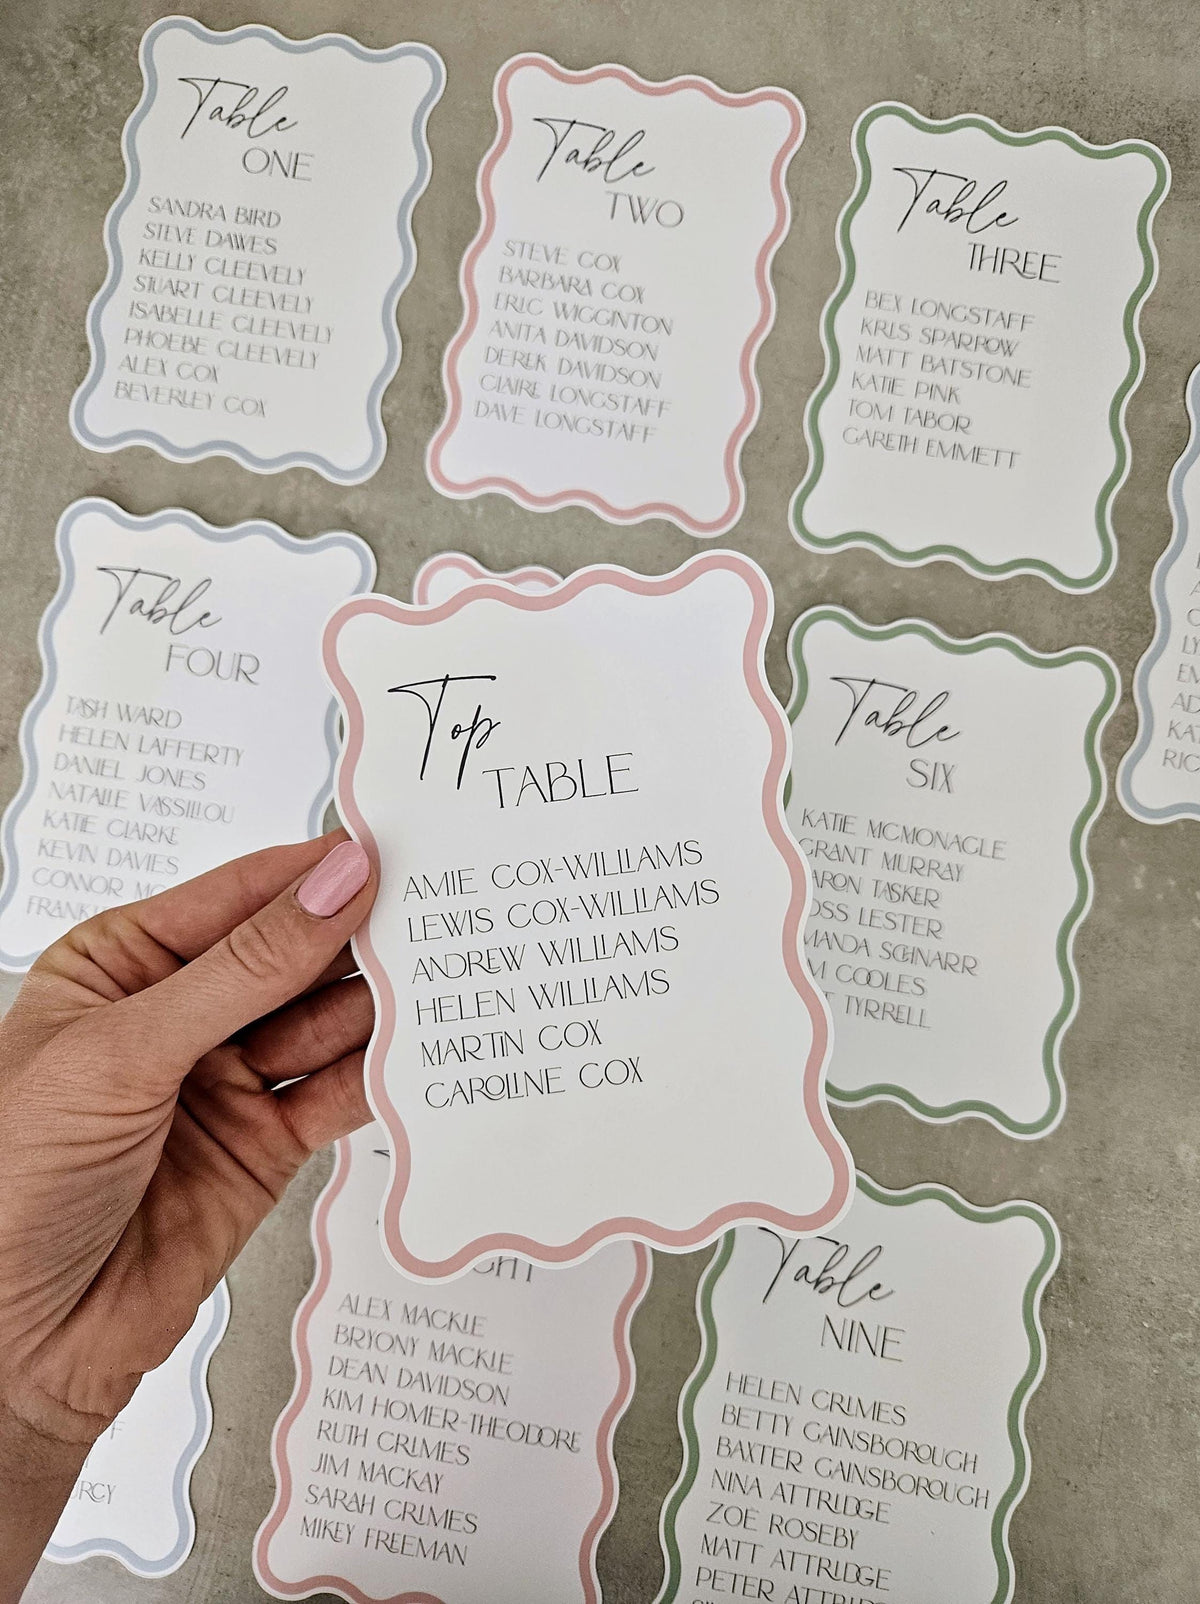 Table
ONE
SANDRA BIRD
STEVE DAWES
KELLY CLEEVELY
STUART CLEEVELY
ISABELLE CLEEVELY
PHOEBE CLEEVELY
ALEX COX
BEVERLEY COX
Table
TWO
STEVE COX
BARBARA COX
ERIC WIGGINTON
ANITA DAVIDSON
DEREK DAVIDSON
CLAIRE LONGSTAFF
DAVE LONGSTAFF
Table
THREE
BEX LONGSTAFF
KRIS SPARROW
MATT BATSTONE
KATIE PINK
TOM TABOR
GARETH EMMETT
Table
FOUR
TASH WARD
HELEN LAFFERTY
DANIEL JONES
NATALIE VASSILLOU
KATIE CLARKE
KEVIN DAVIES
CONNOR
Top
TABLE
AMIE COX-WILLIAMS
LEWIS COX-WILLIAMS
ANDREW WILLIAMS
HELEN WILLIAMS
MARTIN COX
CAROLINE COX
Table
SIX
KATIE MCMONAGLE
GRANT MURRAY
TASKER
LESTER
SCHNARR
COOLES
TYRRELL
ALEX MACKIE
BRYONY MACKIE
DEAN DAVIDSON
KIM HOMER-THEODORE
RUTH CRIMES
JIM MACKAY
SARAH CRIMES
MIKEY FREEMAN
Table
NINE
HELEN CRIMES
BETTY GAINSBOROUGH
BAXTER GAINSBOROUGH
NINA ATTRIDGE
ZOE ROSEBY
MATT ATTRIDGE
PETER